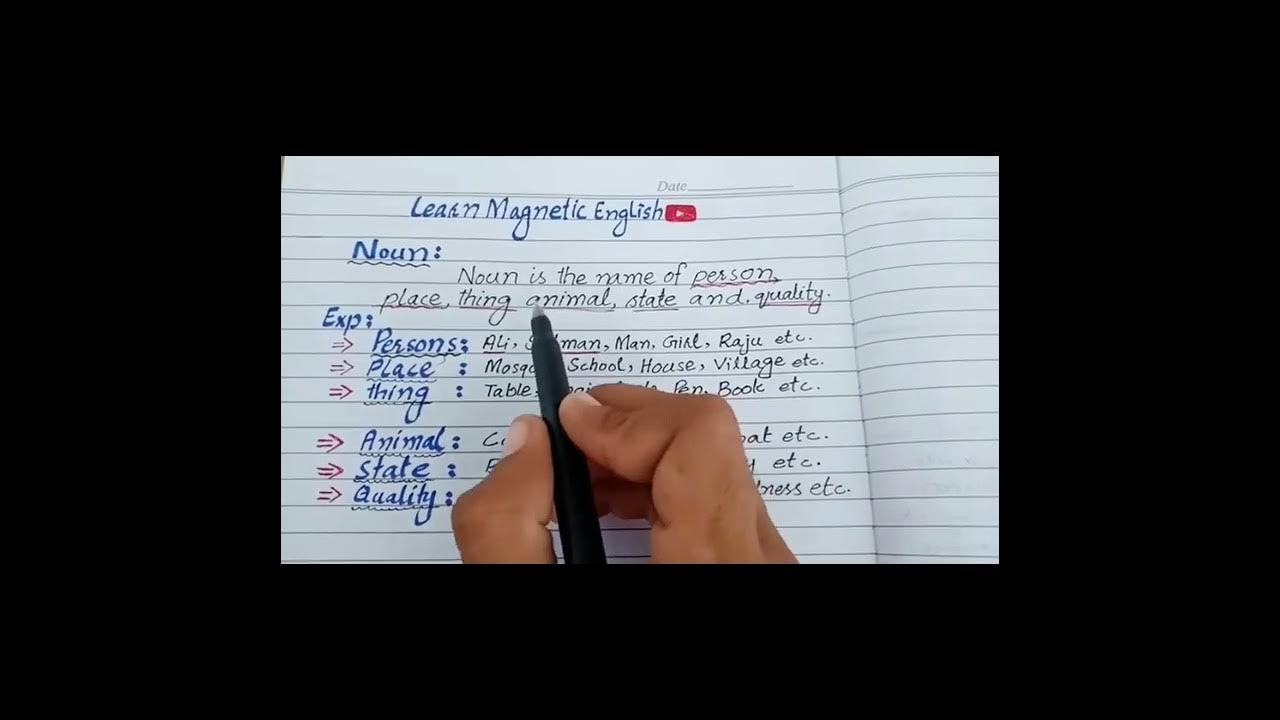 Date
Learn Magnetic English
Noun:
Noun is the name of person,
place, thing animal, state and. quality.
Exp:
⇒ Persons: Ali, Man, Girl, Raju etc.
⇒ Place : School, House, Village etc.
⇒ thing : Table, Pen, Book etc.
⇒ Animal: etc.
⇒ State : etc.
⇒ Quality: etc.